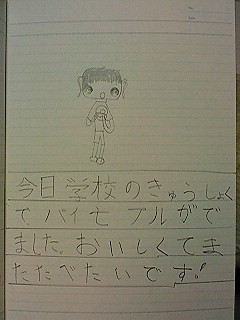 今日学校のきゅうしょく
でパイ七プルがで
ました。おいしくてま
たたべたいです!